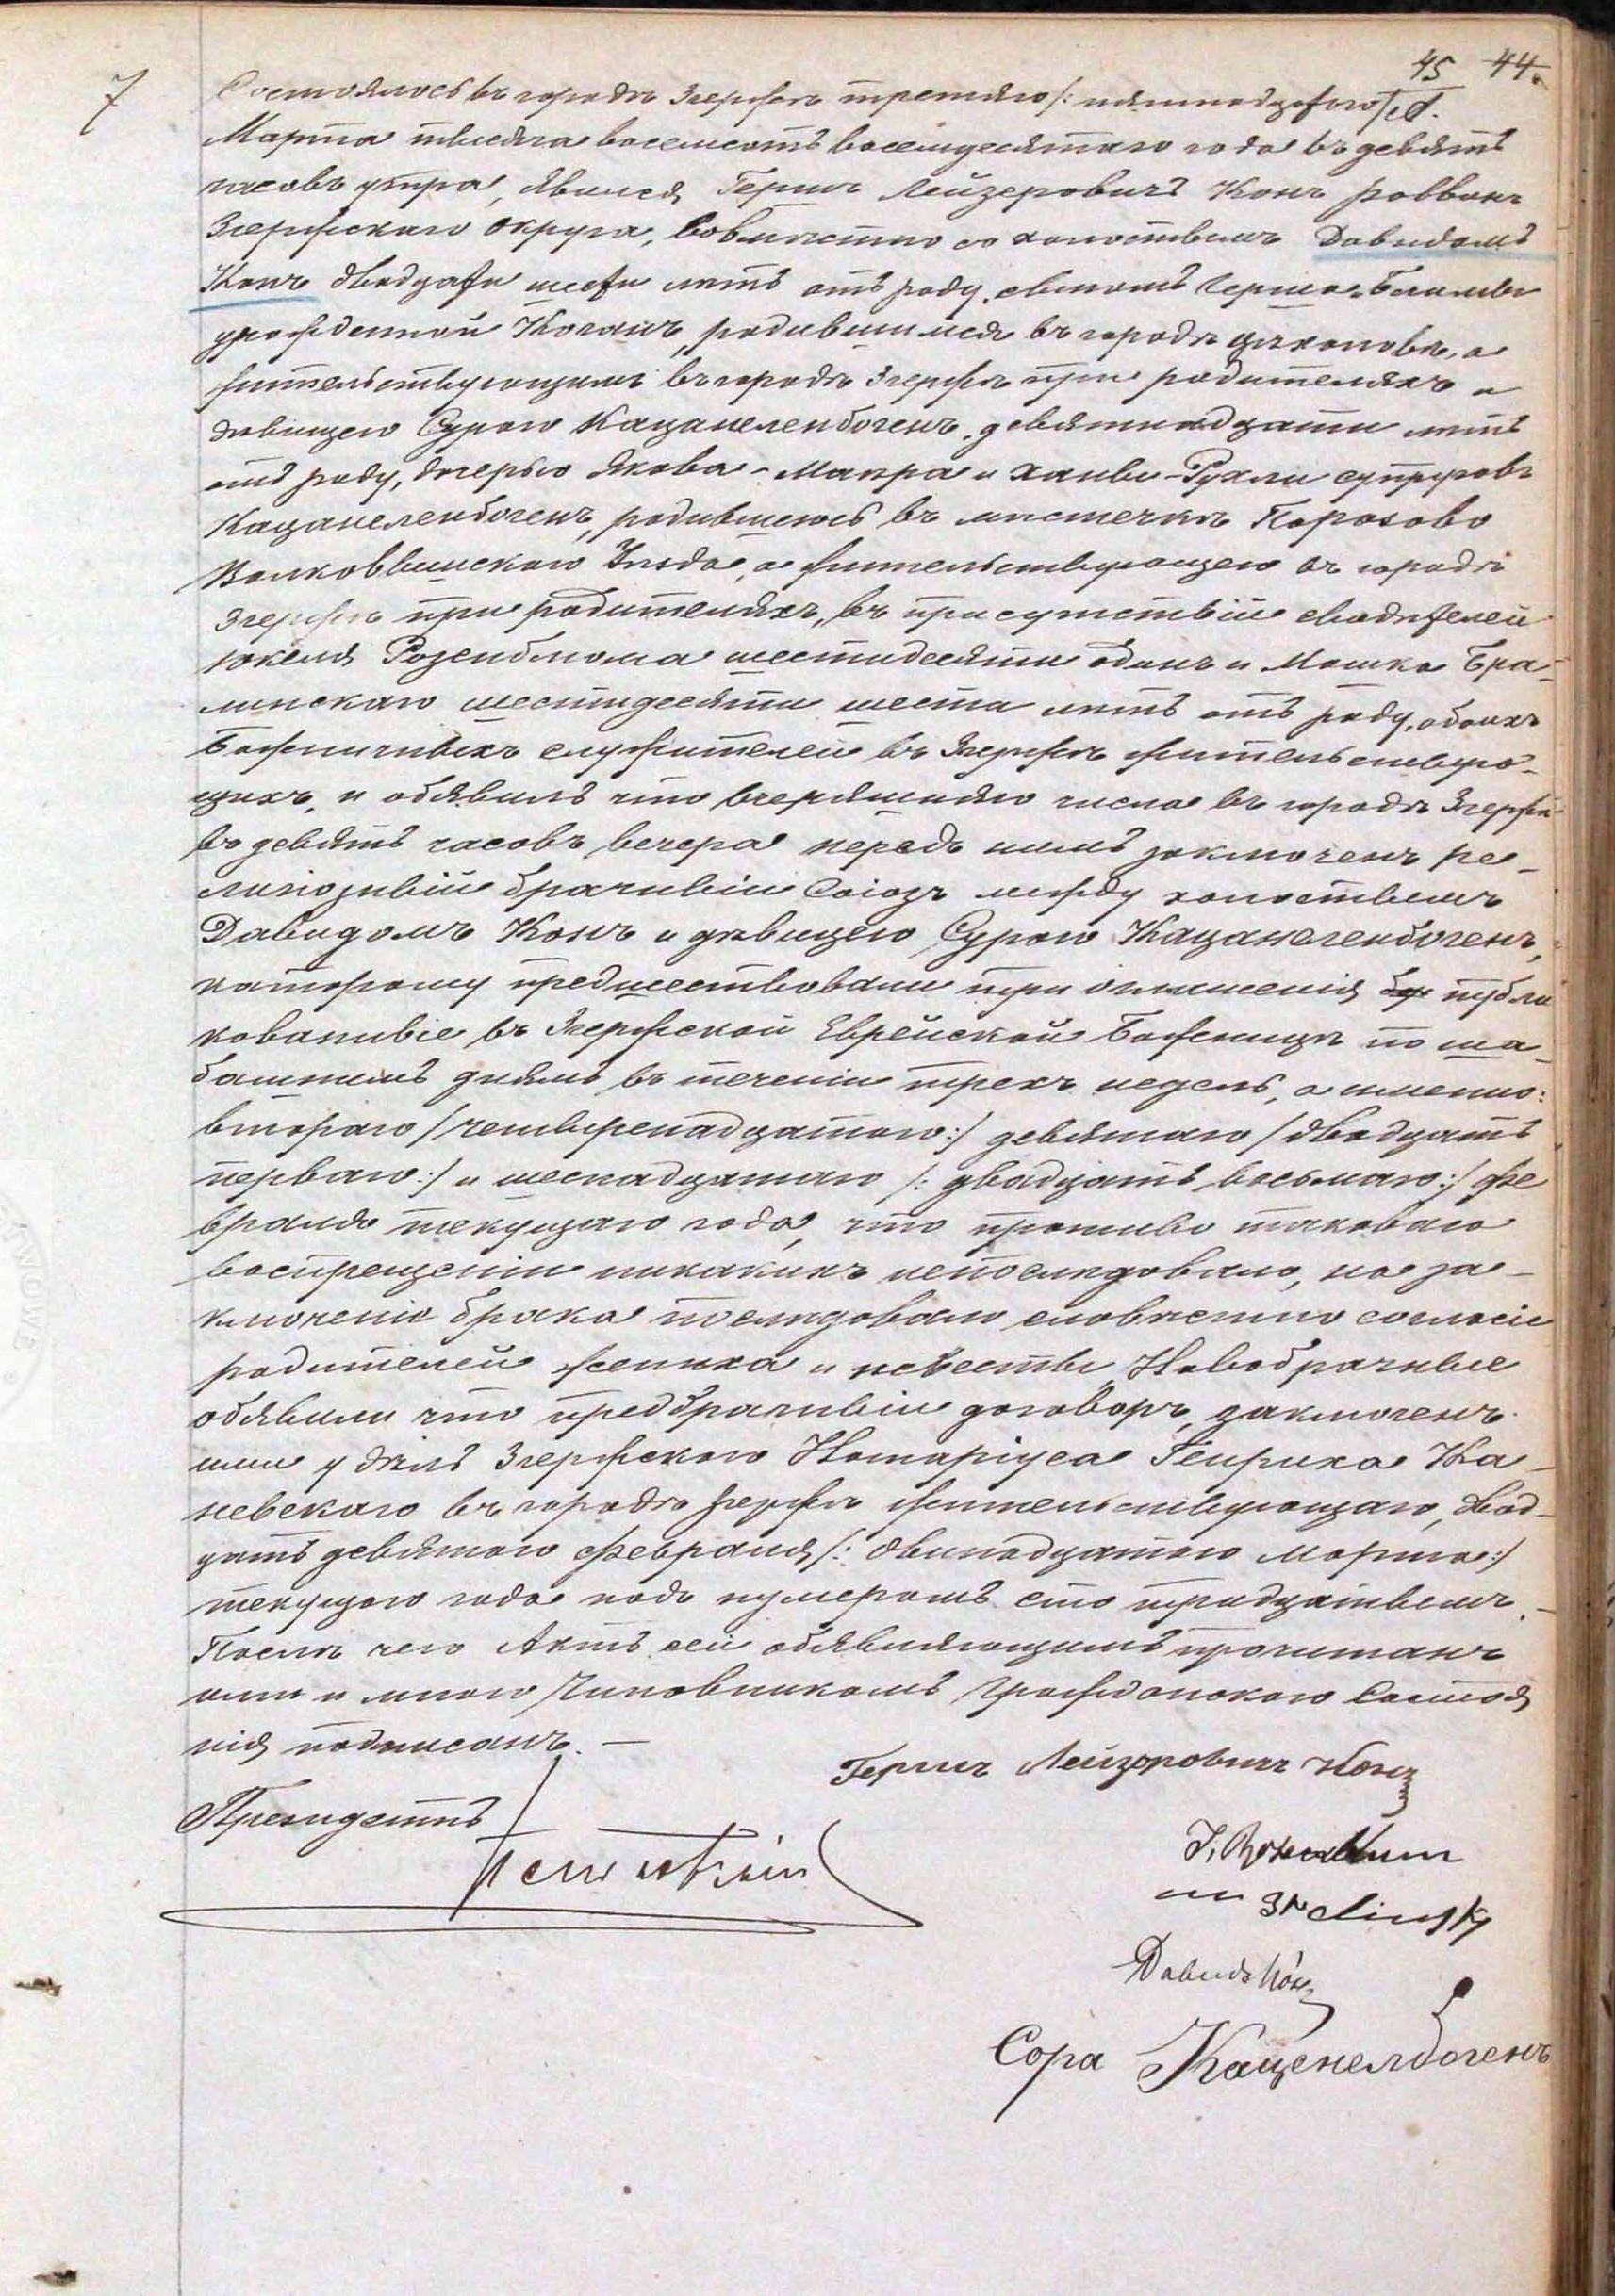 45 44.
7
Состоялось въ городѣ Згержѣ третьяго /: пятнадцатого :/
Марта тысяча восемсотъ восемдесятаго года въ девять
часовъ утра, явился Гершъ Лейзеровичъ Конъ раввинъ
Згержскаго округа, совмѣстно со холостымъ Давидомъ
Конъ двадцати шести лѣтъ отъ роду, сыномъ Герша и Блимы
урожденной Коганъ, родившимся въ городѣ Цѣхановѣ, а
жительствующимъ въ городѣ Згержѣ при родителяхъ и
дѣвицею Сурою Кацанеленбогенъ, девятнадцати лѣтъ
отъ роду, дочерью Якова-Маира и Ханы-Рухли супруговъ
Кацанеленбогенъ, родившеюсь въ мѣстечкѣ Порозово
Волковышскаго Уѣзда, а жительствующею въ городѣ
Згержѣ при родителяхъ, въ присутствіи свидѣтелей
Юкеля Розенблюма шестидесяти одинъ и Мошка Бра-
линскаго шестидесяти шести лѣтъ отъ роду, обоихъ
Божничныхъ служителей въ Згержѣ жительствую-
щихъ, и обявилъ что вчерашняго числа въ городѣ Згержѣ
въ девять часовъ вечера передъ нимъ заключенъ ре-
лигіозный брачный Союзъ между холостымъ
Давидомъ Конъ и дѣвицею Сурою Кацанеленбогенъ,
которому предшествовали три оглашенія публи
кованные въ Згержской Еврейской Божницѣ по ша-
башнимъ днямъ въ теченіи трехъ недель, а именно:
втораго /четырнадцатого:/ девятаго /двадцать
перваго:/ и шеснадцатаго /: двадцать восьмаго:/ Фе
враля текущаго года, что противо таковаго
воспрещеніи никакихъ непослѣдовало, на за-
ключеніе брака послѣдовало словѣстно согласіе
родителей жениха и невесты. Новобрачные
обявили что предбрачный договоръ, заключенъ
ими у дѣлъ Згержского Нотаріуса Генриха Ка-
невского въ городѣ Згержѣ жительствующаго, двад-
цать девятого Февраля /: двинадцатого Марта:/
текущого года подъ нумеромъ сто тридцатымъ. -
Послѣ чего Актъ сей обявляющимъ прочитанъ
ими и мною Чиновникомъ Гражданского Состоя
нія подписанъ. —
Гершъ Лейзеровичъ Конъ
Президентъ
J. Rosenblum
Давидъ Конъ
Сора Каценелбогенъ